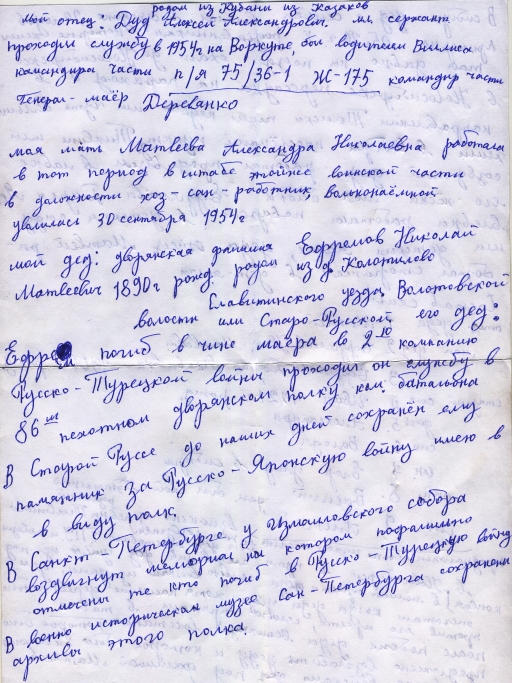 родом из Кубани из Казаков
мой отец: Дуд Алексей Александрович. мл. сержант
проходил службу в 1954г на Воркуте, был водителем Виллиса
командира части п/я 75/36-1 Ж-175 командир части
Генерал-маёр Деревянко
мая мать Матвеева Александра Николаевна работала
в тот период в штабе этойже воинской части
в должности хоз-сан-работник, вольнонаёмной
уволилась 30 сентября 1954г
мой дед: дворянская фамилия Ефремов Николай
Матвеевич 1890г рожд. родом из д. Колотилово
Славитинского уезда Волотовской
волости или Старо-Русской его дед:
Ефрем погиб в чине маёра во 2ую компанию
Русско-Турецкой войны проходил он службу в
86ом пехотном дворянском полку ком. батальона
В Старой Руссе до наших дней сохранён ему
памятник за Русско-Японскую войну имею в
в виду полк.
В Санкт-Петербурге у Измаиловского собора
воздвигнут мемориал на котором пофамильно
отмечены те кто погиб в Русско-Турецкую войну
В военно историческом музее Сан-Петербурга сохранены
архивы этого полка.